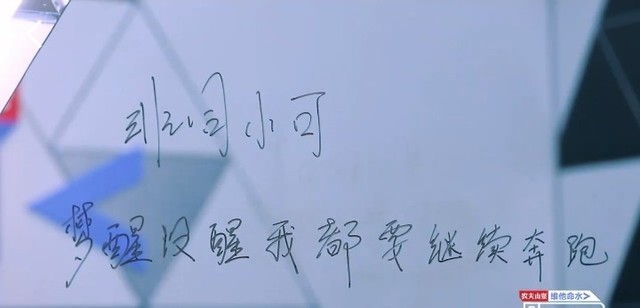 小可
梦醒没醒我都要继续奔跑
农夫山泉 维他命水